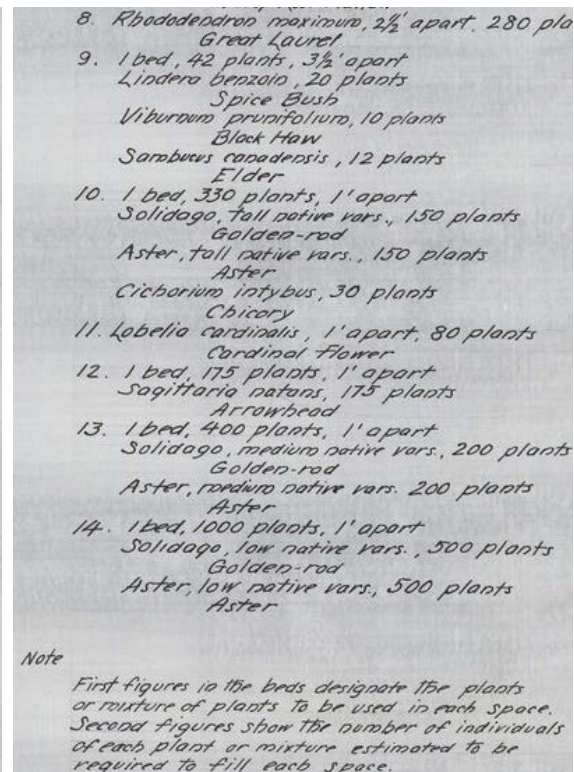 8. Rhododendron maximum, 2½' apart. 280 pla
Great Laurel
9. 1 bed, 42 plants, 3½' apart
Lindera benzoin, 20 plants
Spice Bush
Viburnum prunifolium, 10 plants
Black Haw
Sambucus canadensis, 12 plants
Elder
10. 1 bed, 330 plants, 1' apart
Solidago, tall native vars., 150 plants
Golden-rod
Aster, tall native vars., 150 plants
Aster
Cichorium intybus, 30 plants
Chicory
11. Lobelia cardinalis, 1' apart, 80 plants
Cardinal Flower
12. 1 bed, 175 plants, 1' apart
Sagittaria natans, 175 plants
Arrowhead
13. 1 bed, 400 plants, 1' apart
Solidago, medium native vars., 200 plants
Golden-rod
Aster, medium native vars. 200 plants
Aster
14. 1 bed, 1000 plants, 1' apart
Solidago, low native vars., 500 plants
Golden-rod
Aster, low native vars., 500 plants
Aster
Note
First figures in the beds designate the plants
or mixture of plants to be used in each space.
Second figures show the number of individuals
of each plant or mixture estimated to be
required to fill each space.